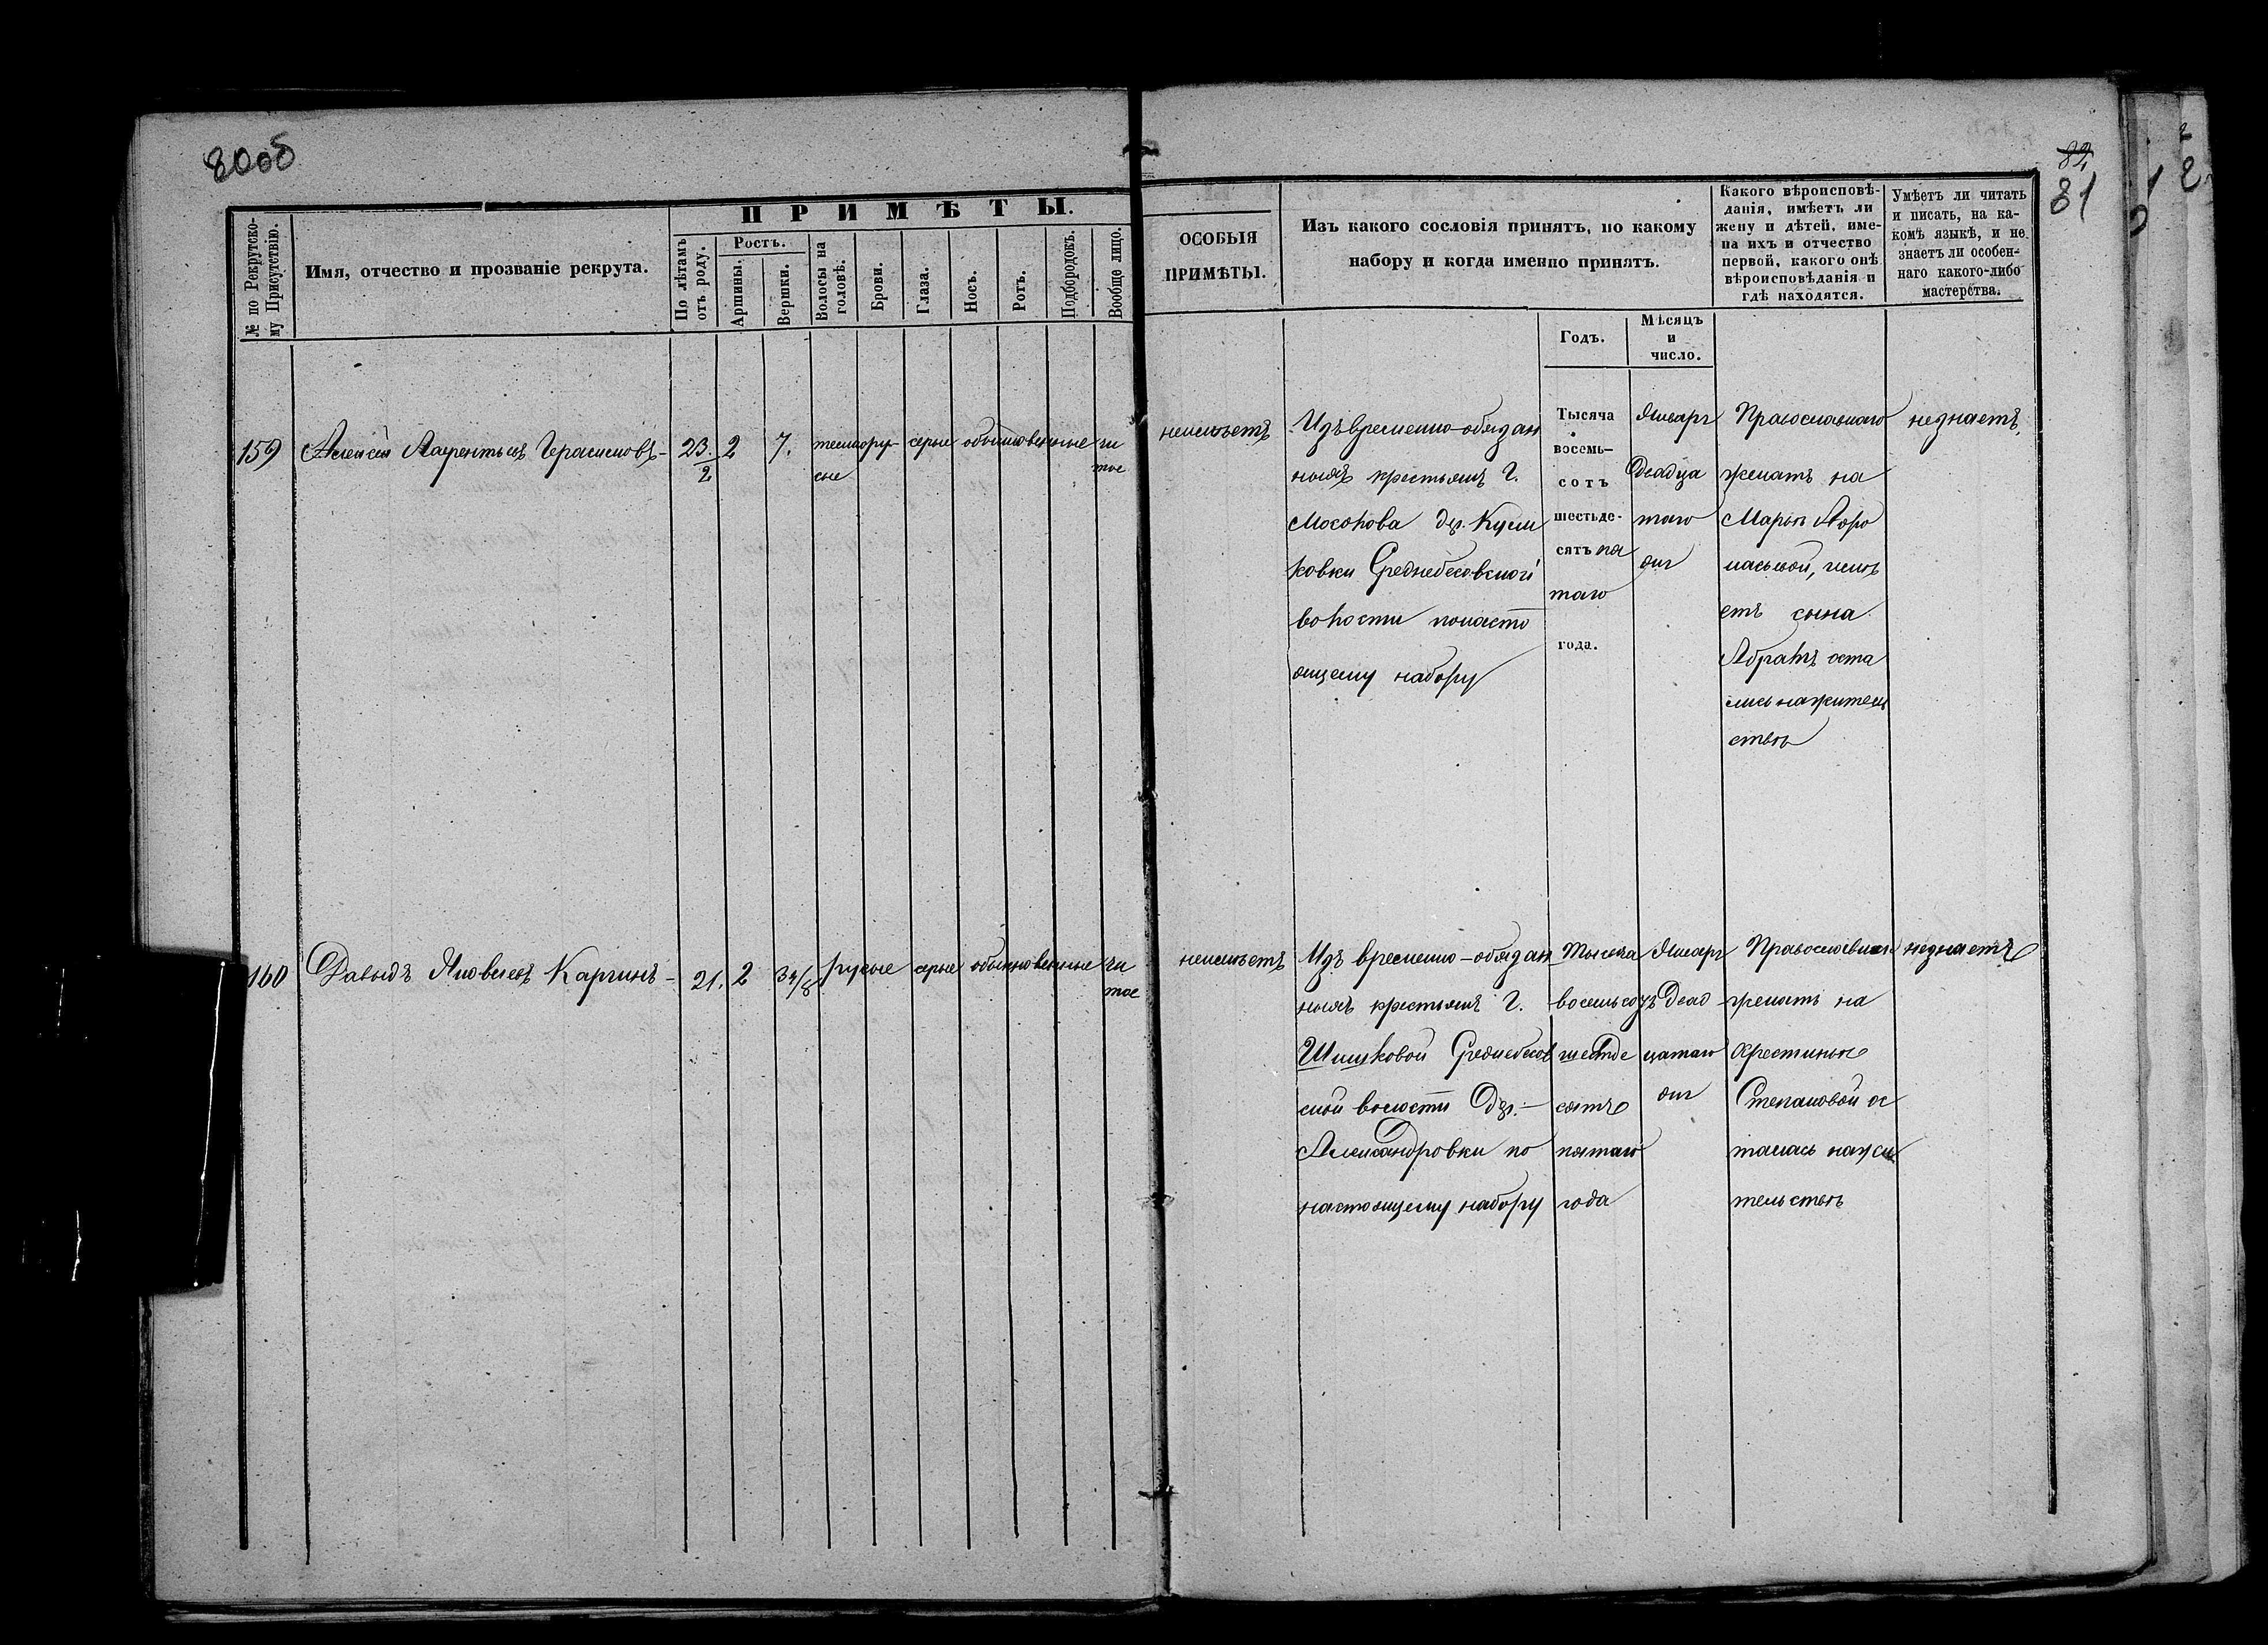 80об
82
81
ПРИМѢТЫ.
№ по Рекрутско-
му Присутствію.
Имя, отчество и прозваніе рекрута.
По лѣтамъ
отъ роду.
Ростъ.
Аршины.
Вершки.
Волосы на
головѣ.
Брови.
Глаза.
Носъ.
Ротъ.
Подбородокъ.
Вообще лицо.
ОСОБЫЯ
ПРИМѢТЫ.
Изъ какого сословія принятъ, по какому
набору и когда именно принятъ.
Какого вѣроисповѣ-
данія, имѣетъ ли
жену и дѣтей, име-
на ихъ и отчество
первой, какого онѣ
вѣроисповѣданія и
гдѣ находятся.
Умѣетъ ли читать
и писать, на ка-
комъ языкѣ, и не
знаетъ ли особен-
наго какого-либо
мастерства.
Годъ.
Мѣсяцъ
и
число.
159
Алексѣй Лаврентьевъ Герасимовъ-
23.
2
2
7.
темнору-
сые
серые
обыкновенные
чи
тое
неимѣетъ
Изъ временно-обязан
ныхъ крестьянъ Г.
Мосолова др. Кули
ковки Среднебесовской
волости понасто
ящему набору
Тысяча
восемь-
сотъ
шестьде-
сятъ пя
таго
года.
Января
двадца
таго
дня
Православнаго
женатъ на
Марьѣ
имѣ
етъ сына
оста
лись нажитель
ствѣ
незнаетъ
160
Давыдъ Яковлевъ Каргинъ-
21.
2
3 4/8
русые
серые
обыкновенные
чи
тое
неимѣетъ
Изъ временно-обязан
ныхъ крестьянъ Г.
Шишковой Среднебесов
ской волости Др.-
Александровки по
настоящему набору
Тысяча
восемьсотъ
шестьде
сятъ
пятаго
года
Января
двад
цатаго
дня
Православнаго
женатъ на
Хрестиньѣ
Степановой ос
талась нажи
тельствѣ
незнаетъ